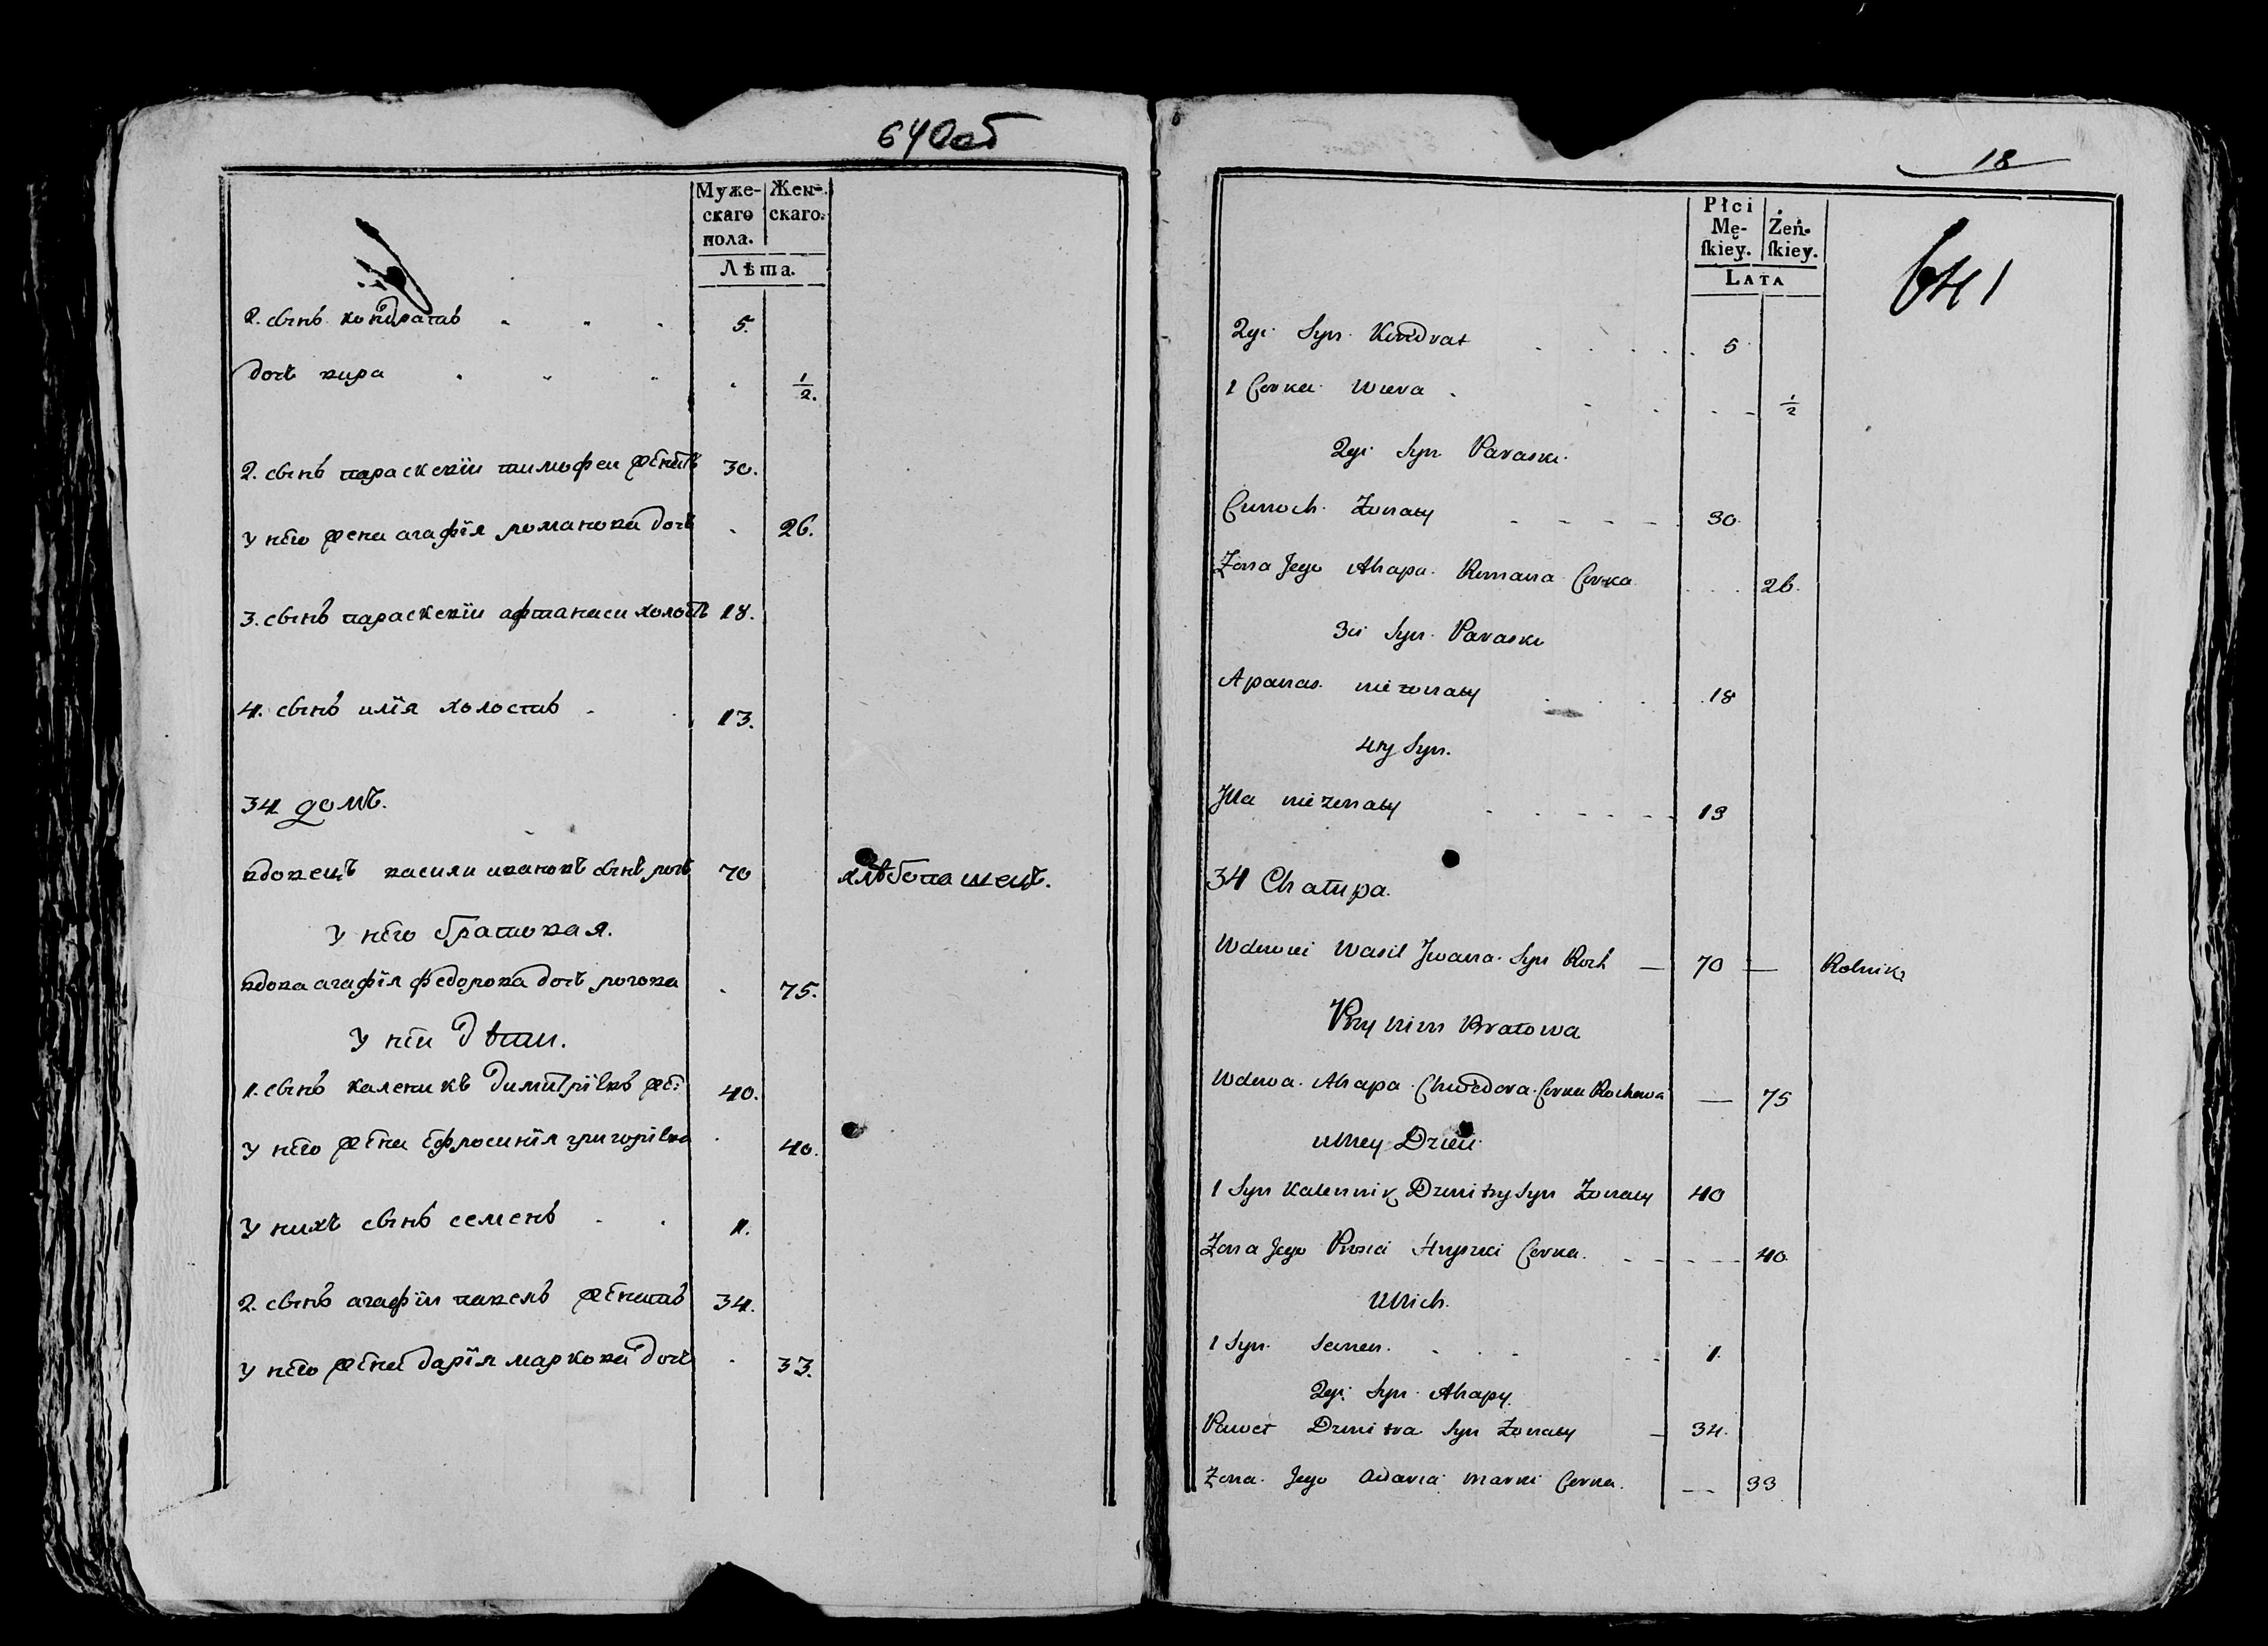 640об
Муже-
скаго
пола.
Жен-
скаго.
Лѣта.
2. сынъ кондратъ 5.
дочь вира 1/2.
2. сынъ параскевіи тимофеи женатъ 30.
у него жена агафія романова дочь 26.
3. сынъ параскевіи афтанаси холостъ 18.
4. сынъ илія холостъ 13.
34 домъ.
вдовецъ васили ивановъ сынъ рогъ 70 хлѣбопашецъ.
у него братовая.
вдова агафія федорова дочь рогова 75.
у ней дѣти.
1. сынъ каленикъ димитріевъ же: 40.
у него жена ефросинія григоріева 40.
у нихъ сынъ семенъ 1.
2. сынъ агафіи павелъ женатъ 34.
у него жена дарія маркова дочь 33.
18
641
Płci
Mę-
skiey.
Żeń-
skiey.
LATA
2gi Syn Kindrat 5
1 Corka Wiera 1/2
2gi Syn Paraski
Żonaty 30.
Żona Jego Ahapa Romana Corka 26.
3ci Syn Paraski
Apanas nieżonaty 18
4ty Syn.
Jlla nieżonaty 13
34 Chałupa.
Wdowiei Wasil Jwana Syn Roch — 70 — Rolnik
Przy nim Bratowa
Wdowa Ahapa Chwedora Corka Rochowa — 75
u Niey Dzieci
1 Syn Kalennik Dzmitry Syn Żonaty 40
Żona Jego Prosia Hryszki Corka 40.
U Nich.
1 Syn Semen. 1.
2gi Syn Ahapy.
Paweł Dzmitra Syn Żonaty — 34.
Żona Jego Adaria Marki Corka. — 33